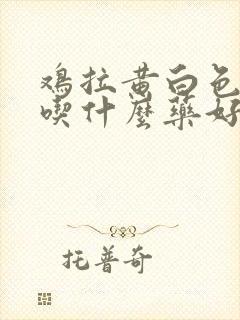 鸡拉黄白色
喫什麽藥好
托普奇